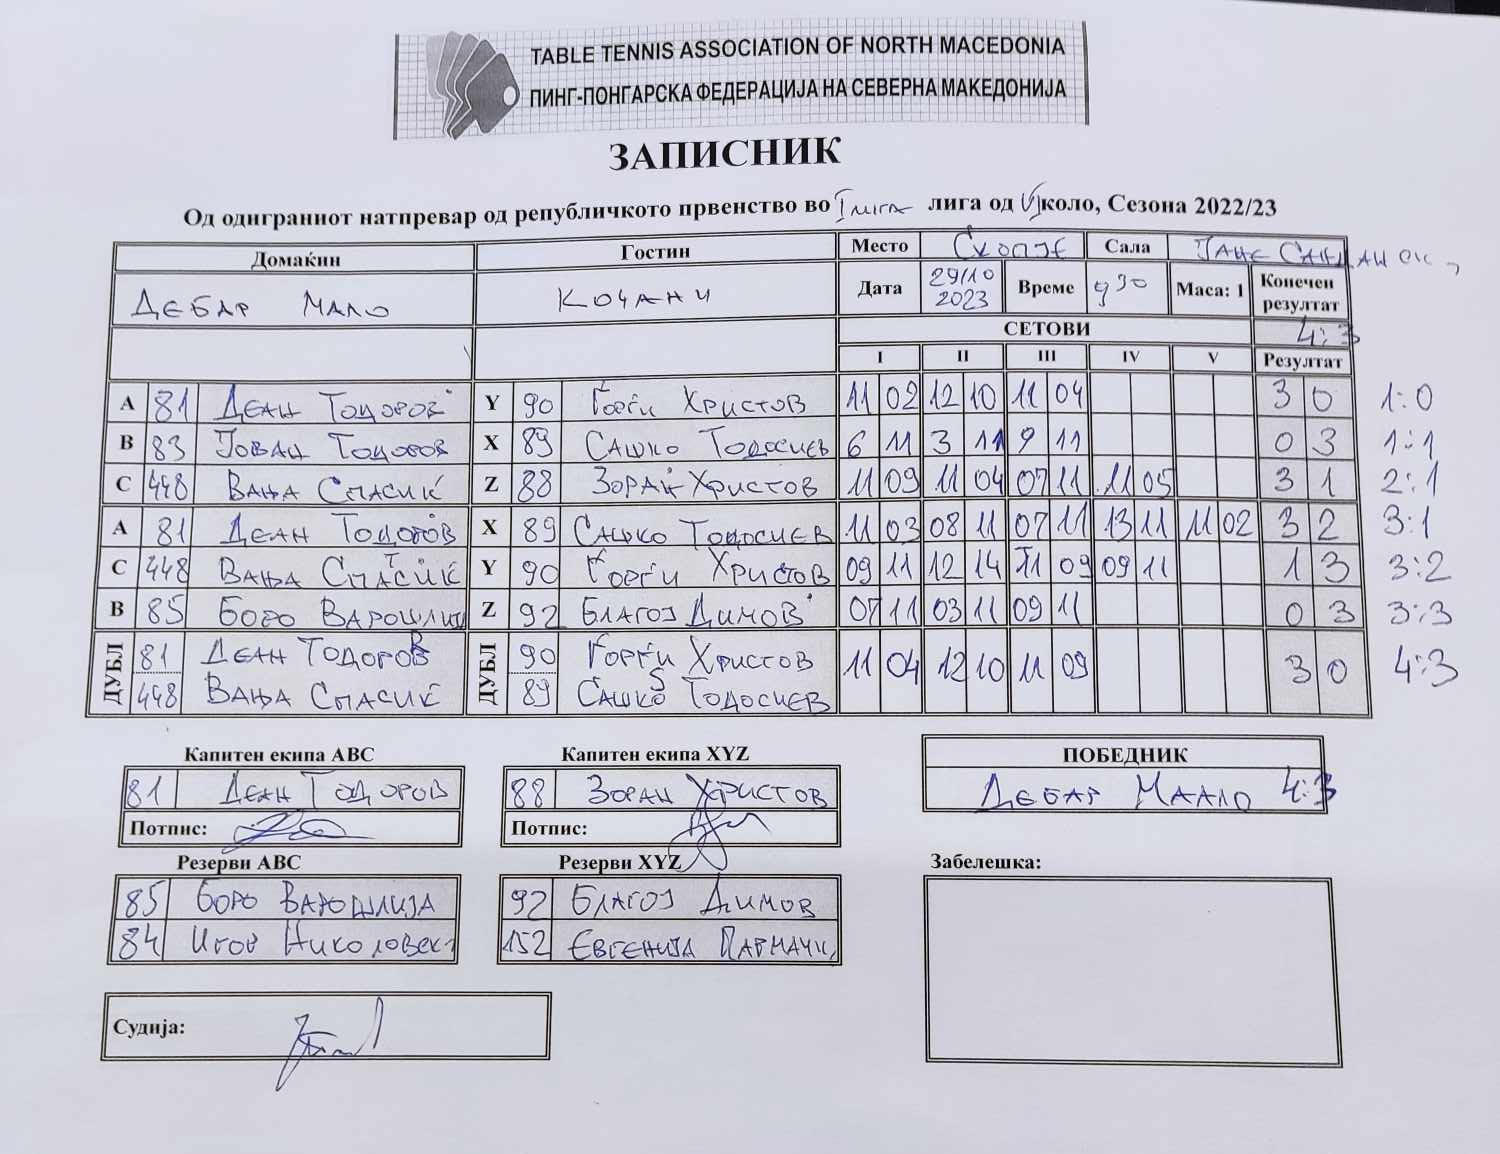 TABLE TENNIS ASSOCIATION OF NORTH MACEDONIA
ПИНГ-ПОНГАРСКА ФЕДЕРАЦИЈА НА СЕВЕРНА МАКЕДОНИЈА
ЗАПИСНИК
Од одиграниот натпревар од републичкото првенство во I лига лига од VI коло, Сезона 2022/23
Домаќин Гостин Место Скопје Сала Јане Сандански
Дебар Мало Кочани Дата 29/10 2023 Време 9 30 Маса: 1 Конечен резултат
СЕТОВИ 4:3
I II III IV V Резултат
A 81 Деан Тодоров Y 90 Ѓорѓи Христов 11 02 12 10 11 04 3 0 1:0
B 83 Јован Тодоров X 89 Сашко Тодосиев 6 11 3 11 9 11 0 3 1:1
C 448 Вања Спасиќ Z 88 Зоран Христов 11 09 11 04 07 11 11 05 3 1 2:1
A 81 Деан Тодоров X 89 Сашко Тодосиев 11 03 08 11 07 11 13 11 11 02 3 2 3:1
C 448 Вања Спасиќ Y 90 Ѓорѓи Христов 09 11 12 14 11 09 09 11 1 3 3:2
B 85 Боро Варошлиј Z 92 Благој Димов 07 11 03 11 09 11 0 3 3:3
ДУБЛ 81 Деан Тодоров ДУБЛ 90 Ѓорѓи Христов 11 04 12 10 11 09 3 0 4:3
448 Вања Спасиќ 89 Сашко Тодосиев
Капитен екипа ABC Капитен екипа XYZ ПОБЕДНИК
81 Деан Тодоров 88 Зоран Христов Дебар Маало 4:3
Потпис: Потпис:
Резерви ABC Резерви XYZ Забелешка:
85 Боро Варошлија 92 Благој Димов
84 Игор Николовск 152 Евгенија
Судија: